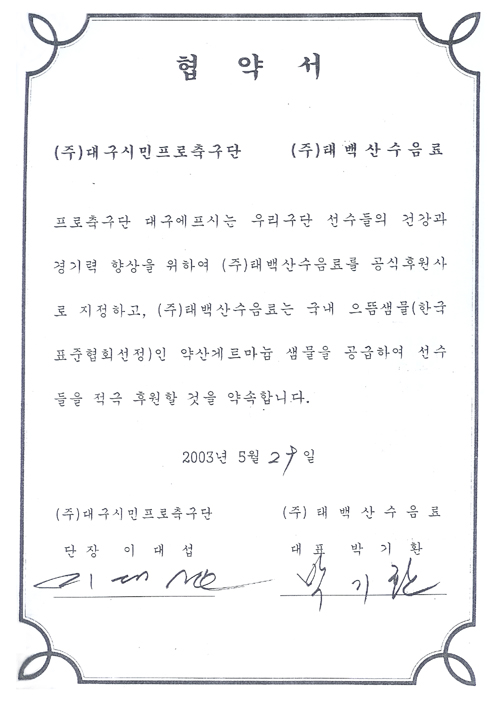 협 약 서
(주)대구시민프로축구단 (주)태백산수음료
프로축구단 대구에프시는 우리구단 선수들의 건강과
경기력 향상을 위하여 (주)태백산수음료를 공식후원사
로 지정하고, (주)태백산수음료는 국내 으뜸샘물(한국
표준협회선정)인 약산게르마늄 샘물을 공급하여 선수
들을 적극 후원할 것을 약속합니다.
2003년 5월 29일
(주)대구시민프로축구단 (주)태백산수음료
단장 이대섭 대표 박기환
이대섭 박기환